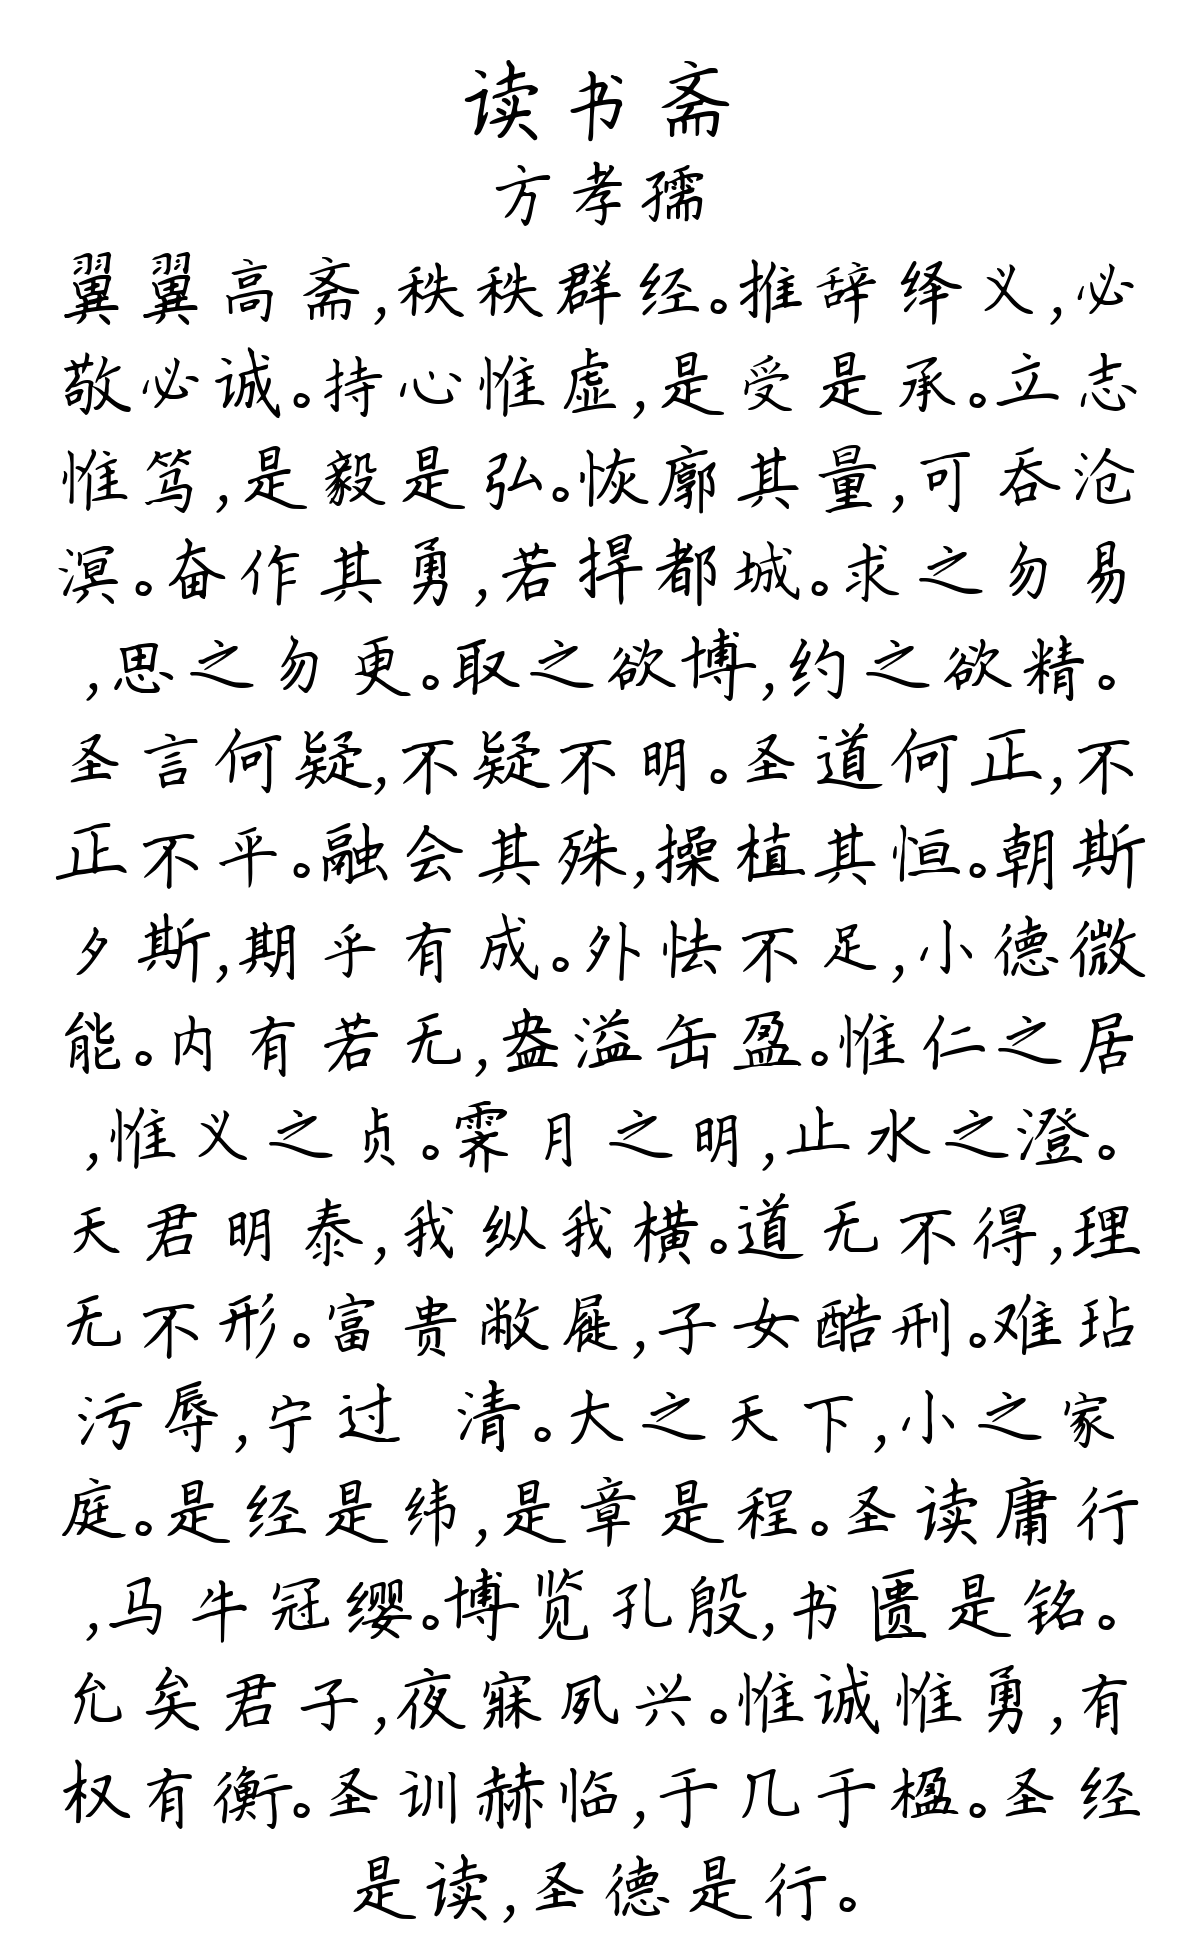 读书斋
方孝孺
翼翼高斋,秩秩群经。推辞绎义,必
敬必诚。持心惟虚,是受是承。立志
惟笃,是毅是弘。恢廓其量,可吞沧
溟。奋作其勇,若捍都城。求之勿易
,思之勿更。取之欲博,约之欲精。
圣言何疑,不疑不明。圣道何正,不
正不平。融会其殊,操植其恒。朝斯
夕斯,期乎有成。外怯不足,小德微
能。内有若无,盎溢缶盈。惟仁之居
,惟义之贞。霁月之明,止水之澄。
天君明泰,我纵我横。道无不得,理
无不形。富贵敝屣,子女酷刑。难玷
污辱,宁过 清。大之天下,小之家
庭。是经是纬,是章是程。圣读庸行
,马牛冠缨。博览孔殷,书匮是铭。
允矣君子,夜寐夙兴。惟诚惟勇,有
权有衡。圣训赫临,于几于楹。圣经
是读,圣德是行。